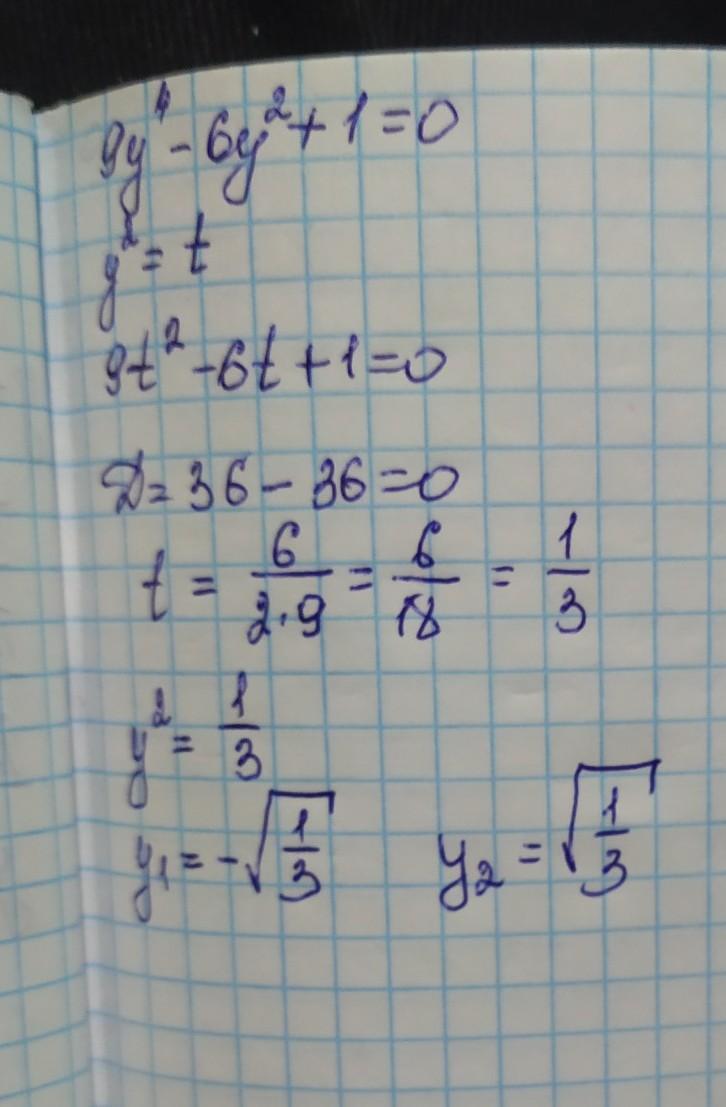 9y⁴ - 6y² + 1 = 0
y² = t
9t² - 6t + 1 = 0
D = 36 - 36 = 0
t = 6/(2·9) = 6/18 = 1/3
y² = 1/3
y₁ = -√(1/3) y₂ = √(1/3)